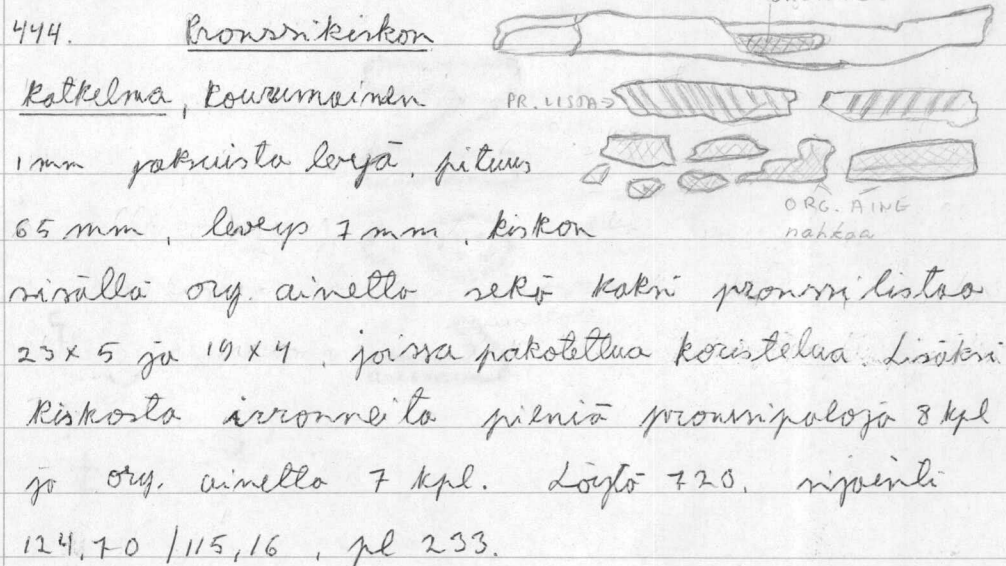 444. Pronssikiskon
katkelma, kourumainen
PR. LISTA →
1 mm paksuista levyä, pituus
65 mm, leveys 7 mm, kiskon
ORG. AINE
nahkaa
sisällä org. ainetta sekä kaksi pronssilistaa
23 x 5 ja 19 x 4, joissa pakotettua koristelua. Lisäksi
kiskosta irronneita pieniä pronssipaloja 8 kpl
ja org. ainetta 7 kpl. Löytö 720, sijainti
124,70 /115,16, pl 233.